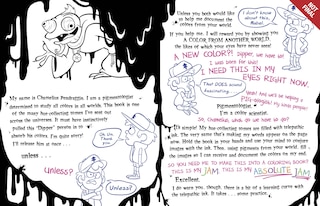 My name is Chamelius Pendraggin. I am a pigmentologist
determined to study all colors in all worlds. This book is one
of the many hue-collecting tomes I've sent out
across the universes. It must have instinctively
pulled this "Dipper" person in to
sketch his colors. I'm quite sorry!
I'll release him at once . . .
unless . . .
Oh um
Thank
you
Unless?
Unless?
NOT
FINAL
Unless you both would like
to help me document the
colors from your world.
I don't know
about this,
Mabel
If you help me, I will reward you by showing you
A COLOR FROM ANOTHER WORLD,
the likes of which your eyes have never seen!
A NEW COLOR?! Dipper, we have to!
I was born for this!
I NEED THIS IN MY
EYES RIGHT NOW.
That DOES sound
fascinating.
Pigmentologist.
I'm a color scientist.
So, Chamelius, Uncle, do we how we go?
It's simple! My hue-collecting tomes are filled with telepathic
ink. The very same that's making my words appear on the page
now. Hold the book in your hands and use your mind to conjure
images with the ink. Then, using pigments from your world, fill
the images so I can receive and document the colors on my end.
SO YOU NEED ME TO MAKE THIS INTO A COLORING BOOK?
THIS IS MY JAM. THIS IS MY ABSOLUTE JAM.
Excellent.
I do warn you, though, there is a bit of a learning curve with
telepathic ink. It takes . . . some practice.